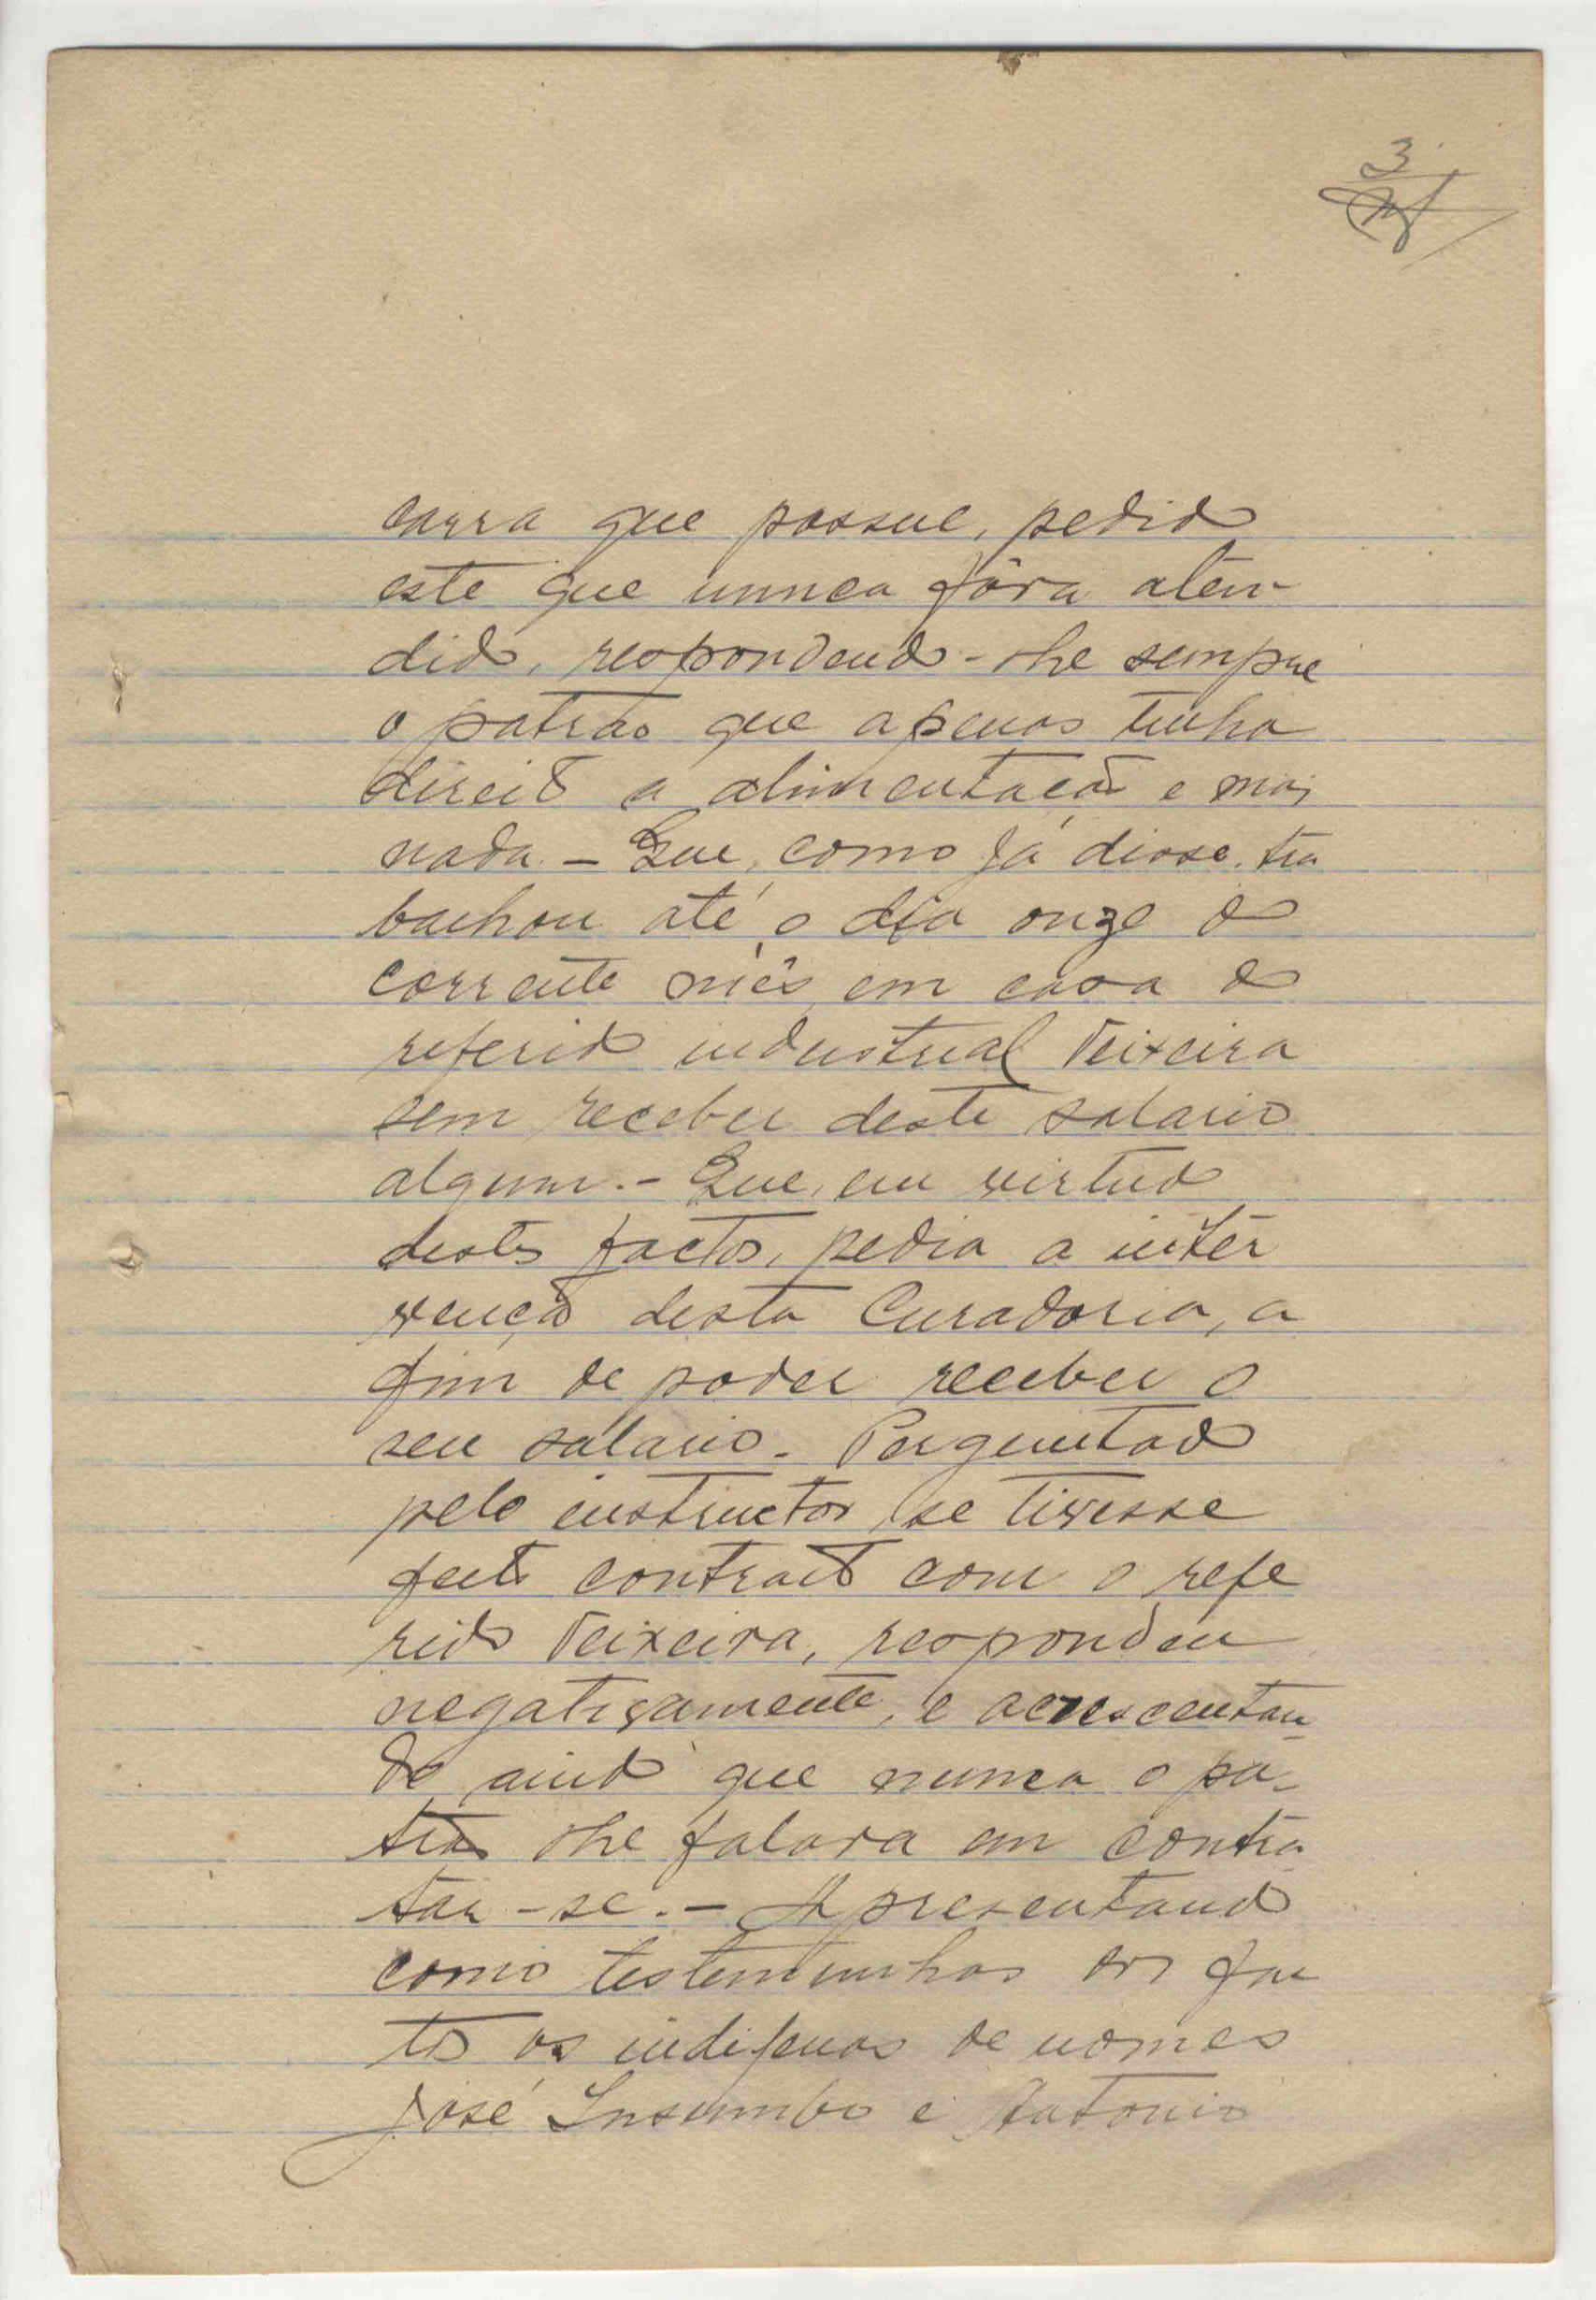 3
carra que possue, pedido
este que nunca fôra aten-
dido, respondendo-lhe sempre
o patrão que apenas tinha
direito a alimentação e mais
nada. - Que, como já disse, tra
balhou até o dia onze do
corrente mês, em casa do
referido industrial Teixeira
sem receber deste salario
algum. - Que, em virtude
destes factos, pedia a inter
venção desta Curadoria, a
fim de poder receber o
seu salario. Perguntado
pelo instructor se tivesse
feito contrato com o refe
rido Teixeira, respondeu
negativamente, e acrescentan
do ainda que nunca o pa-
trão lhe falara em contra
tar-se. - Apresentando
como testemunhas dos fac
tos os indigenas de nomes
José Insumbo e Antonio